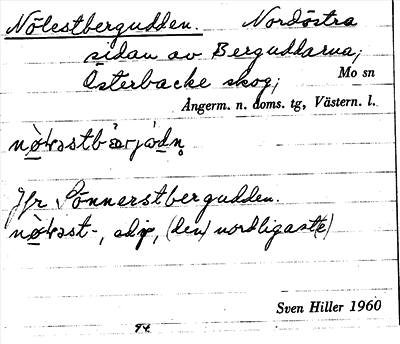 Nölestbergudden. Nordöstra
sidan av Berguddarna;
Österbacke skog; Mo sn
Ångerm. n. doms. tg, Västern. l.
Jfr Sönnerstbergudden.
adj, (den) nordligast(e)
Sven Hiller 1960
94